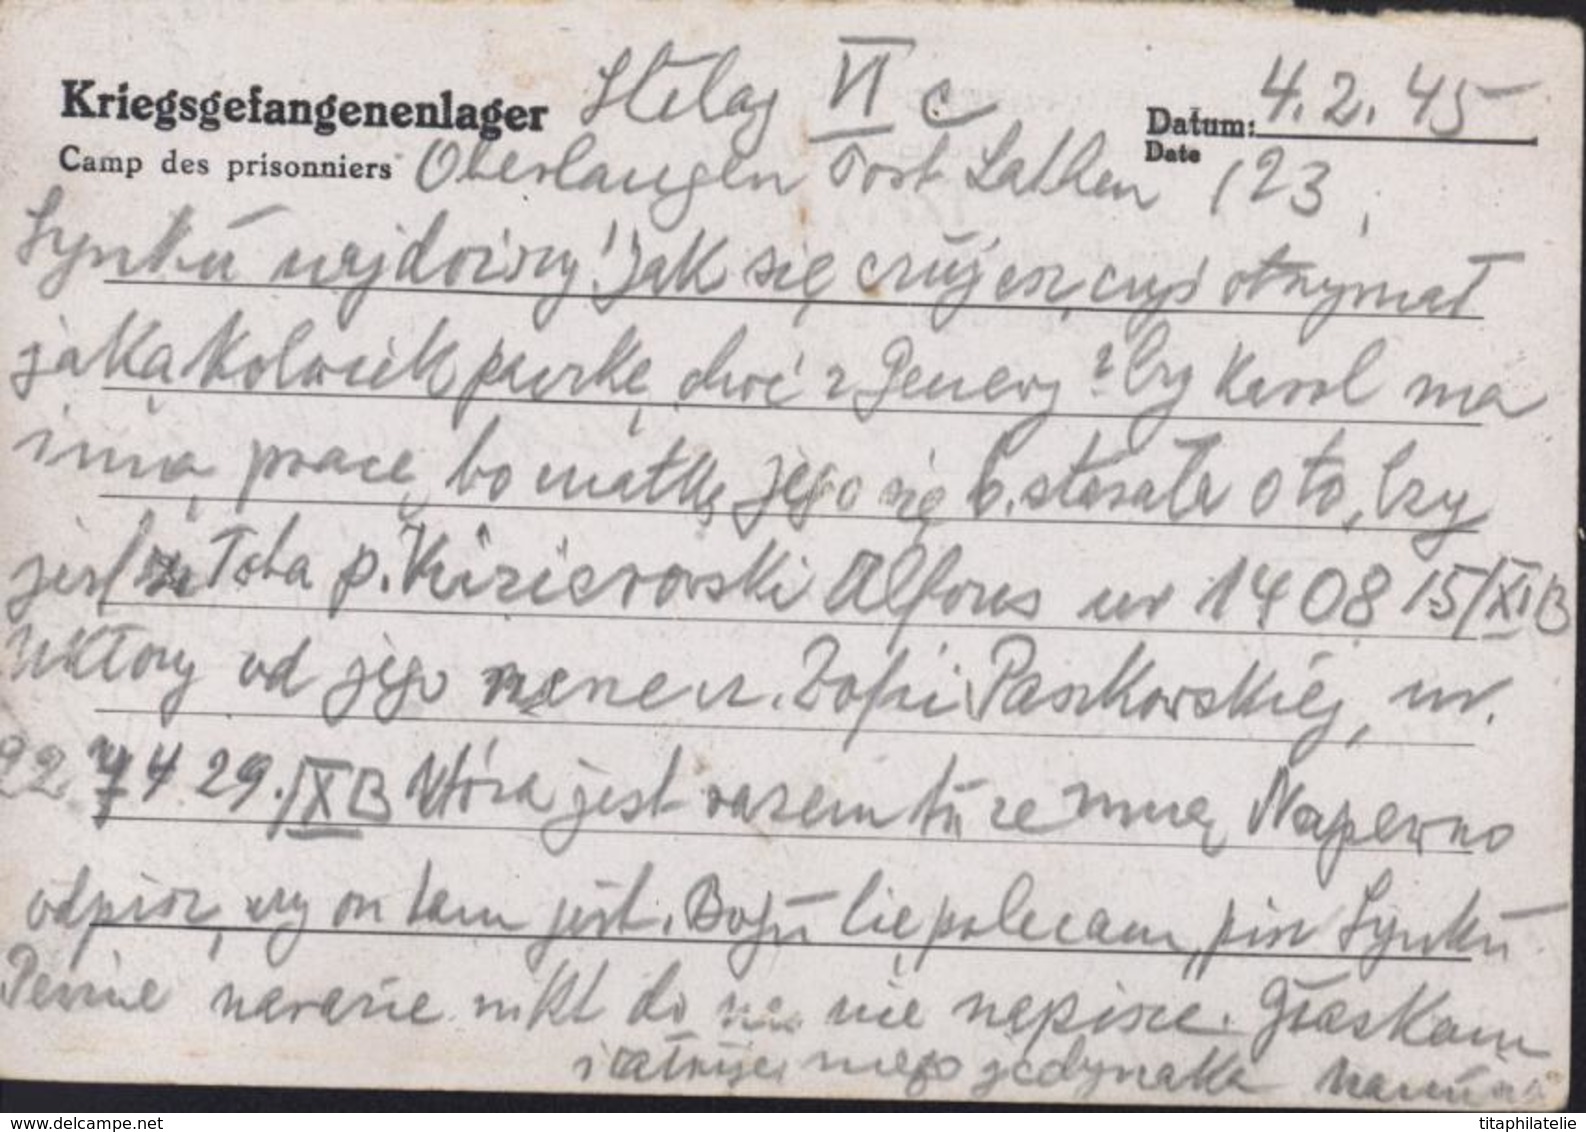 Kriegsgefangenenlager Stalag VI c Datum: 4.2.45
Camp des prisonniers Oberlangen Post Lathen /23 Date
Synku najdroższy! Jak się czujesz, czyś otrzymał
jakąkolwiek paczkę, choć z Genewy? Czy Karol ma
inną pracę, bo matka jego się b. starała o to, Czy
jest z Tobą p. Alfons nr 140815/XIB
który od jego Zofii Paszkowskiej, nr.
22 7429./XB która jest razem tu ze mną Napewno
odpisz, czy on tam jest. Bogu Cię polecam, pisz Synku
Pewnie narazie nikt do nas nie napisze. Głaskam
i całuję mego jedynaka Mamusia
titaphilatelie